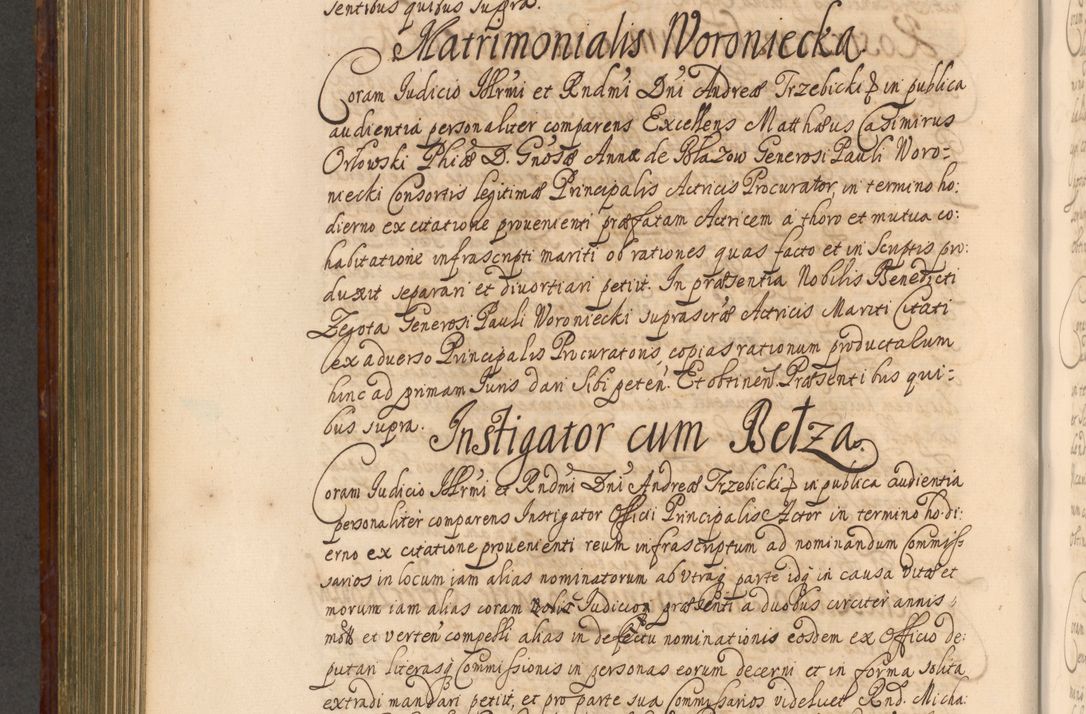 sentibus quibus supra.
Matrimonialis Woroniecka
Coram Judicio Illrmi et Rndmi Dni Andreæ Trzebicki in publica
audientia personaliter comparens Excellens Matthæus Casimirus
Orłowski Phiæ D. Gnosæ Annæ de Błazow Generosi Pauli Woro-
niecki Consortis legitimæ Principalis Actricis Procurator, in termino ho:
dierno ex citatione provenienti præfatam Actricem a thoro et mutua co:
habitatione infrascripti mariti ob rationes quas facto et in Scriptis pro:
duxit separari et divortiari petiit. In præsentia Nobilis Benedicti
Zegota Generosi Pauli Woroniecki suprascræ Actricis Mariti Citati
ex adverso Principalis Procuratoris copias rationum productalum
hinc ad primam Juris dari sibi peten. Et obtinen. Præsentibus qui-
bus supra.
Instigator cum Bełza.
Coram Judicio Illrmi et Rndmi Dni Andreæ Trzebicki in publica audientia
personaliter comparens Instigator Officii Principalis Actor in termino hodi:
erno ex citatione provenienti reum infrascriptum ad nominandum Commiss
sarios in locum iam alias nominatorum ab utraq parte idq in causa vitæ et
morum iam alias coram Judicio præsenti a duobus circiter annis
et verten compelli alias in defectu nominationis eosdem ex Officio de:
putari literasq Commissionis in personas eorum decerni et in forma solita
extradi mandari petiit, et pro parte sua Commissarios videlicet Rnd. Micha: